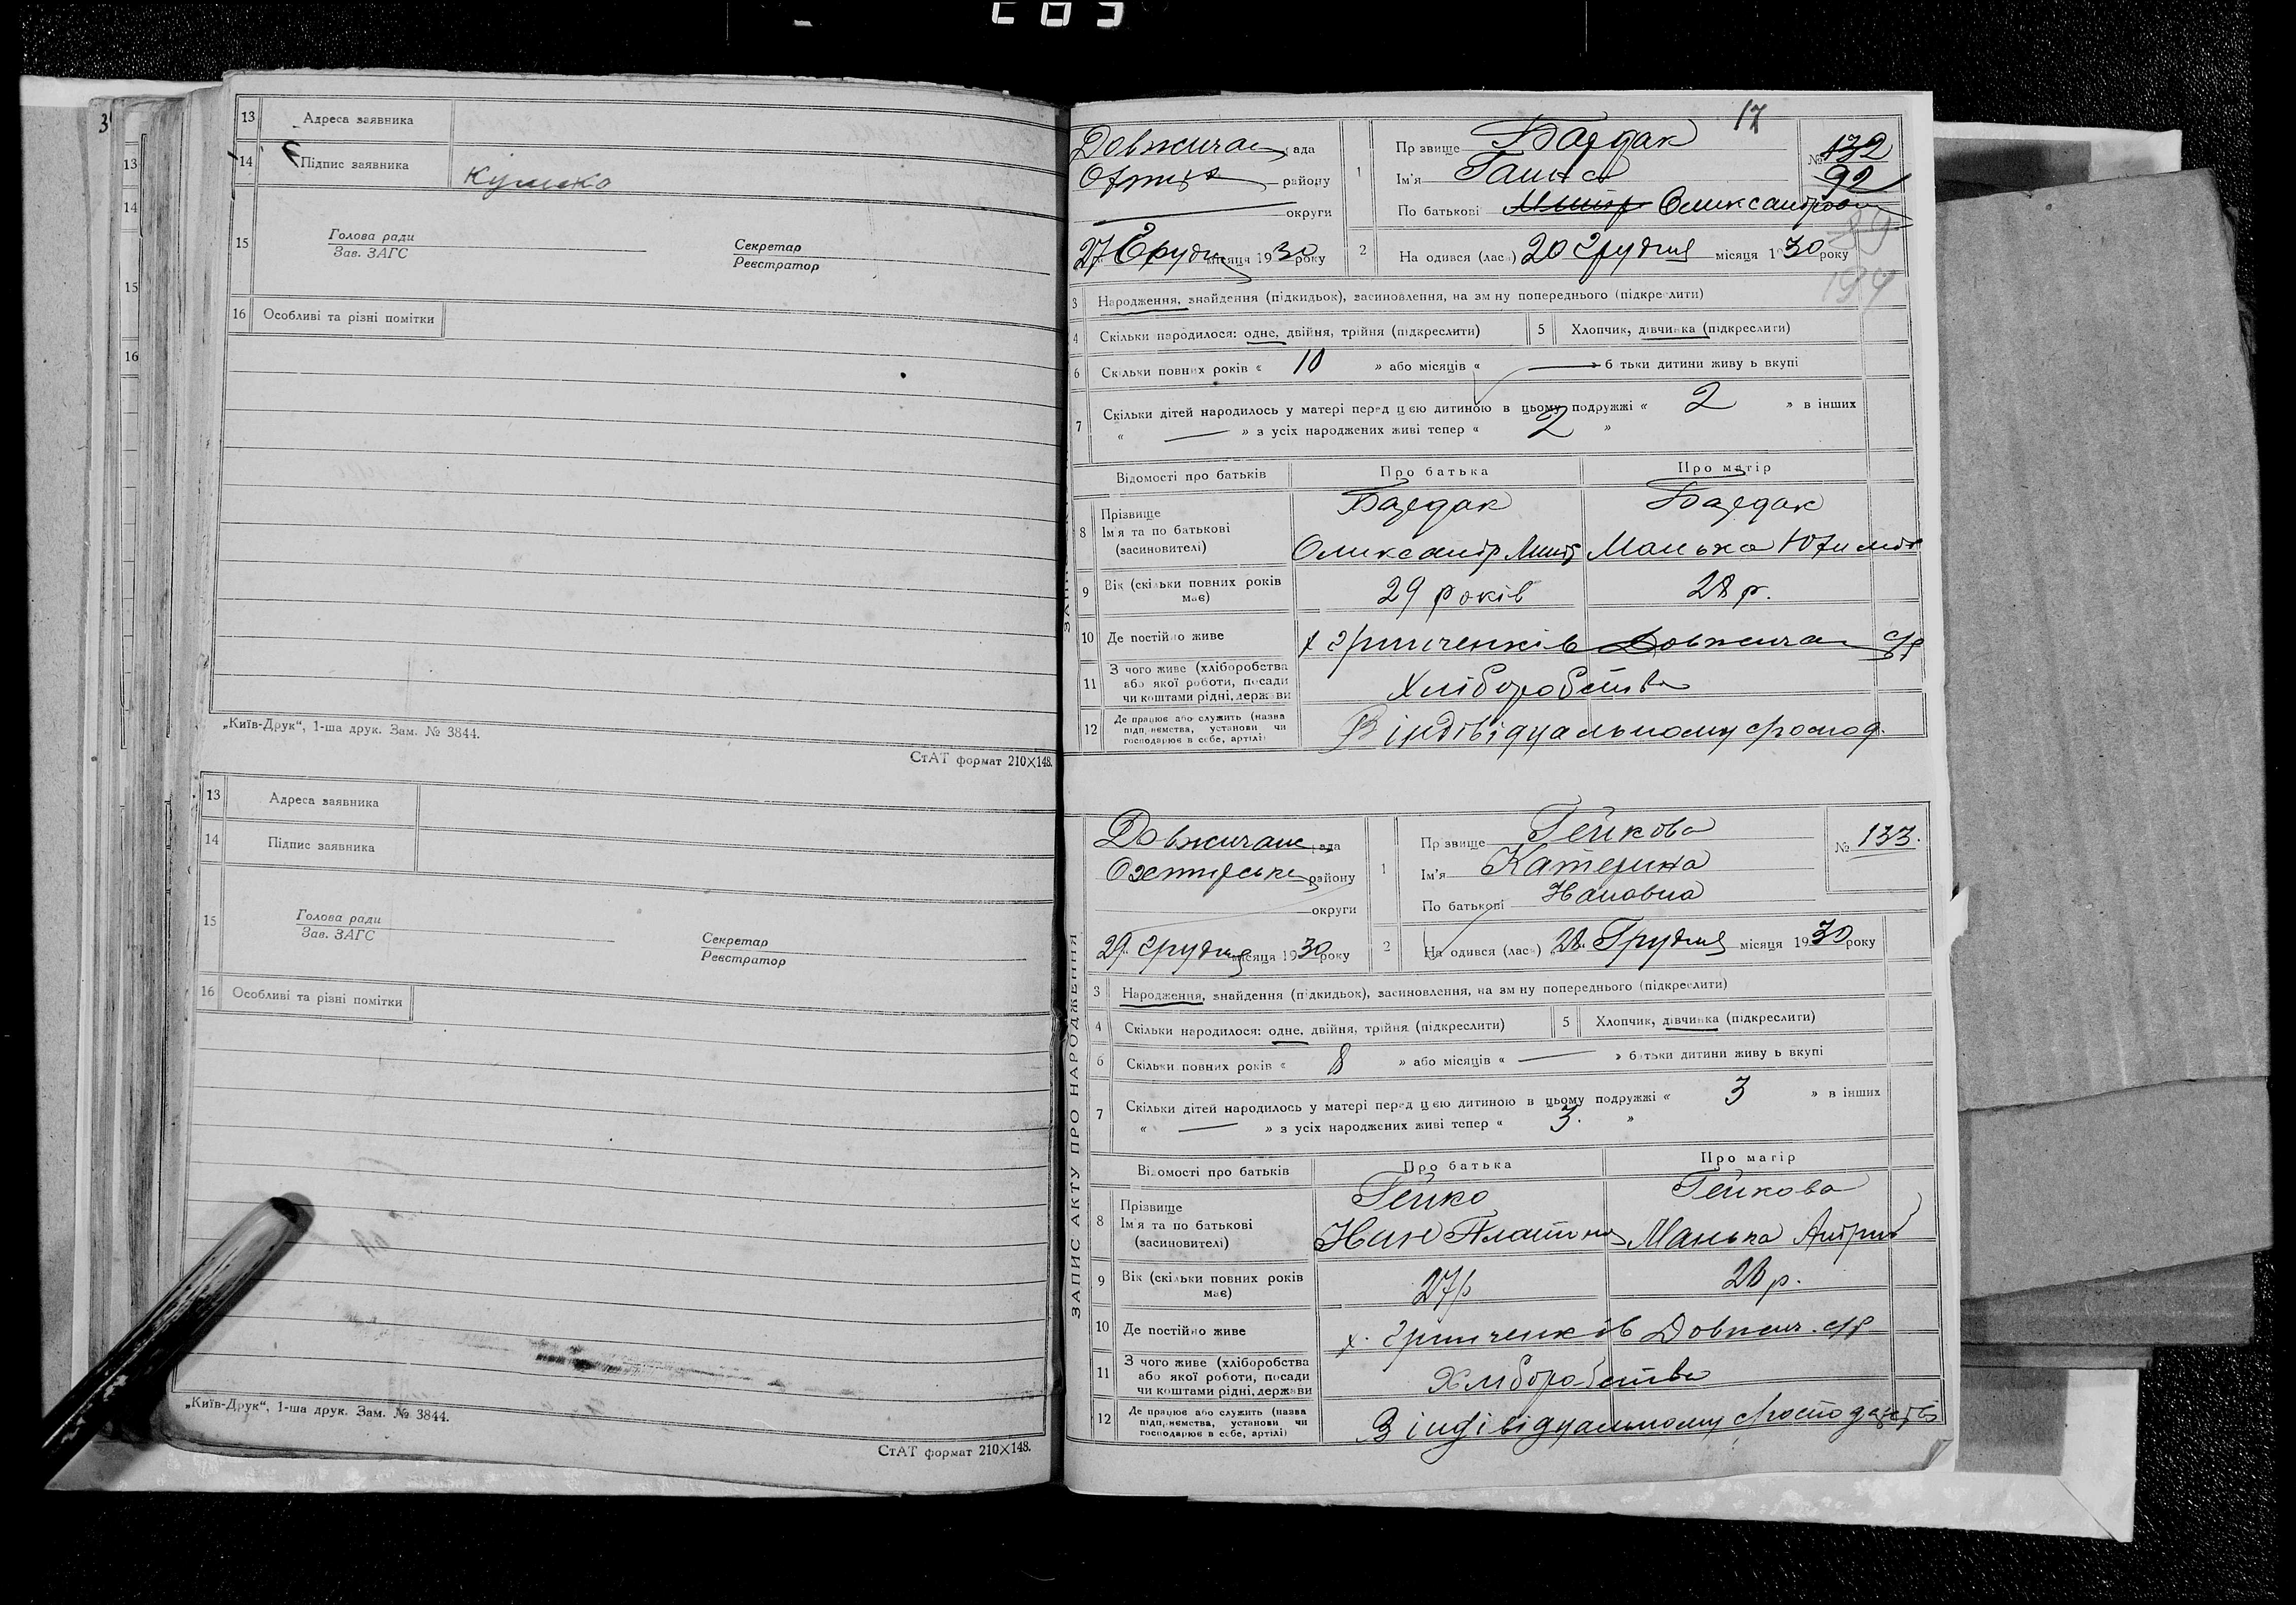 3
13
14
15
16
13 Адреса заявника
14 Підпис заявника
15 Голова ради
Зав. ЗАГС
Секретар
Реєстратор
16 Особливі та різні помітки
„Київ-Друк“, 1-ша друк. Зам. № 3844.
СтАТ формат 210×148.
13 Адреса заявника
14 Підпис заявника
15 Голова ради
Зав. ЗАГС
Секретар
Реєстратор
16 Особливі та різні помітки
„Київ-Друк“, 1-ша друк. Зам. № 3844.
СтАТ формат 210×148.
17
ада
району
округи
27 Грудня місяця 1930 року
1 Пр звище
Ім'я Ганна
По батькові
№ 132
92
2 На одився (лась) 20 Грудня місяця 1930 року
3 Народження, знайдення (підкидьок), засиновлення, на зм ну попереднього (підкреслити)
4 Скільки народилося: одне, двійня, трійня (підкреслити)
5 Хлопчик, дівчинка (підкреслити)
6 Скільки повних років « 10 » або місяців « — » б тьки дитини живу ь вкупі
7 Скільки дітей народилось у матері перед цією дитиною в цьому подружжі « 2 » в інших
« — » з усіх народжених живі тепер « 2 »
Відомості про батьків
Про батька
Про матір
8 Прізвище
Ім'я та по батькові
(засиновителі)
Олександр
Манька
9 Вік (скільки повних років
має)
29 років
28 р.
10 Де постійно живе
х Грінченків
11 З чого живе (хліборобства
або якої роботи, посади
чи коштами рідні, держави
Хліборобства
12 Де працює або служить (назва
підприємства, установи чи
господарює в себе, артілі)
В індівідуальному господ.
ЗАПИС АКТУ ПРО НАРОДЖЕННЯ
рада
району
округи
29 Грудня місяця 1930 року
1 Пр звище Гейкова
Ім'я Катерина
По батькові
№ 133.
2 На одився (лась) 28 Грудня місяця 1930 року
3 Народження, знайдення (підкидьок), засиновлення, на зм ну попереднього (підкреслити)
4 Скільки народилося: одне, двійня, трійня (підкреслити)
5 Хлопчик, дівчинка (підкреслити)
6 Скільки повних років « 8 » або місяців « — » батьки дитини живу ь вкупі
7 Скільки дітей народилось у матері перед цією дитиною в цьому подружжі « 3 » в інших
« — » з усіх народжених живі тепер « 3. »
Відомості про батьків
Про батька
Про матір
8 Прізвище
Ім'я та по батькові
(засиновителі)
Гейко
Гейкова
Манька
9 Вік (скільки повних років
має)
27р
28 р.
10 Де постійно живе
х. Грінченків Довжич. с/р
11 З чого живе (хліборобства
або якої роботи, посади
чи коштами рідні, держави
Хліборобства
12 Де працює або служить (назва
підприємства, установи чи
господарює в себе, артілі)
В індівідуальному господарстві